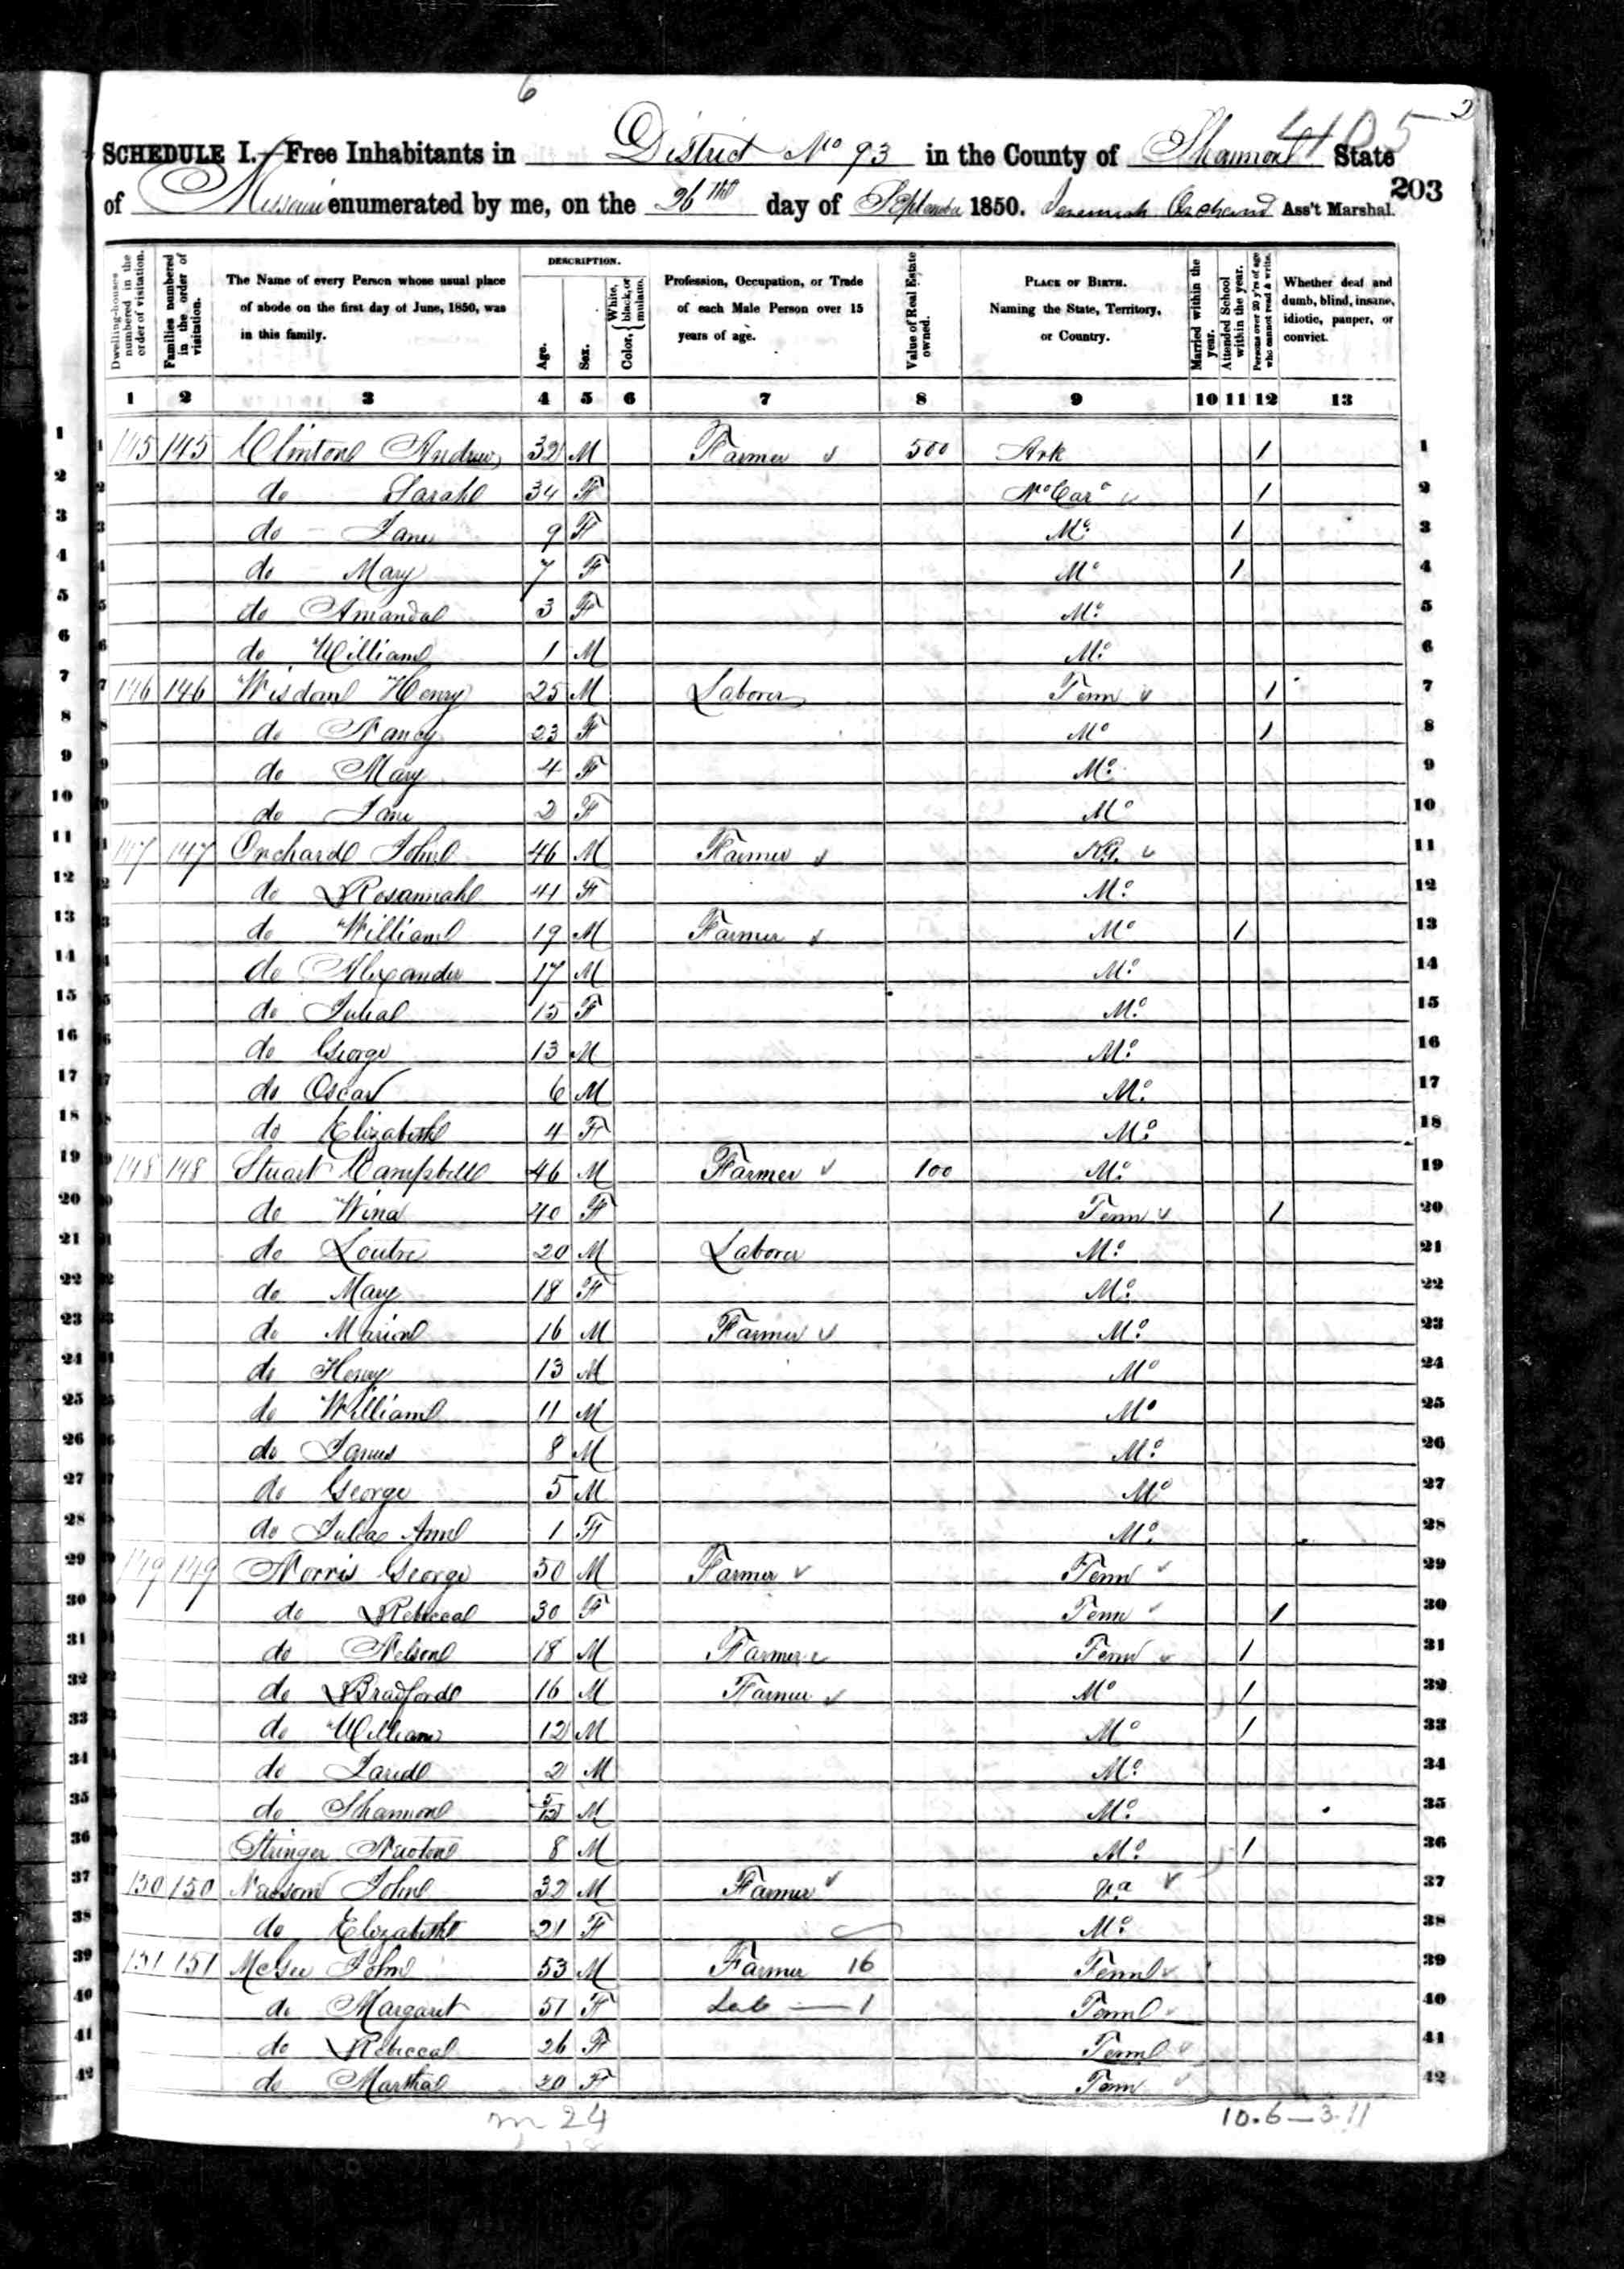 6
4105
2
SCHEDULE I.—Free Inhabitants in District No 93 in the County of Shannon State
203
of Missouri enumerated by me, on the 26th day of September 1850. Jeremiah Orchard Ass't Marshal.
Dwelling-houses numbered in the order of visitation.
Families numbered in the order of visitation.
The Name of every Person whose usual place of abode on the first day of June, 1850, was in this family.
DESCRIPTION.
Age.
Sex.
Color, { White, black, or mulatto.
Profession, Occupation, or Trade of each Male Person over 15 years of age.
Value of Real Estate owned.
PLACE OF BIRTH. Naming the State, Territory, or Country.
Married within the year.
Attended School within the year.
Persons over 20 y'rs of age who cannot read & write.
Whether deaf and dumb, blind, insane, idiotic, pauper, or convict.
1 2 3 4 5 6 7 8 9 10 11 12 13
1 145 145 Clinton Andrew 32 M Farmer 500 Ark 1 1
2 do Sarah 34 F No Caro 1 2
3 do Jane 9 F Mo 1 3
4 do Mary 7 F Mo 1 4
5 do Amanda 3 F Mo 5
6 do William 1 M Mo 6
7 146 146 Wisdom Henry 25 M Laborer Tenn 1 7
8 do Nancy 23 F Mo 1 8
9 do Mary 4 F Mo 9
10 do Jane 2 F Mo 10
11 147 147 Orchard John 46 M Farmer Ky. 11
12 do Rosannah 41 F Mo 12
13 do William 19 M Farmer Mo 1 13
14 do Alexander 17 M Mo 14
15 do Julia 15 F Mo 15
16 do George 13 M Mo 16
17 do Oscar 6 M Mo 17
18 do Elizabeth 4 F Mo 18
19 148 148 Stuart Campbell 46 M Farmer 100 Mo 19
20 do Wina 40 F Tenn 1 20
21 do Loutre 20 M Laborer Mo 21
22 do Mary 18 F Mo 22
23 do Marion 16 M Farmer Mo 23
24 do Henry 13 M Mo 24
25 do William 11 M Mo 25
26 do James 8 M Mo 26
27 do George 5 M Mo 27
28 do Julia Ann 1 F Mo 28
29 149 149 Norris George 50 M Farmer Tenn 29
30 do Rebecca 30 F Tenn 1 30
31 do Nelson 18 M Farmer Tenn 1 31
32 do Bradford 16 M Farmer Mo 1 32
33 do William 12 M Mo 1 33
34 do Jared 2 M Mo 34
35 do Shannon 5/12 M Mo 35
36 Stringer Newton 8 M Mo 1 36
37 150 150 John 32 M Farmer Va 37
38 do Elizabeth 21 F Mo 38
39 151 151 McGee John 53 M Farmer 16 Tenn 39
40 do Margaret 51 F Lab — 1 Tenn 40
41 do Rebecca 26 F Tenn 41
42 do Martha 20 F Tenn 42
m 24
10.6—3.11